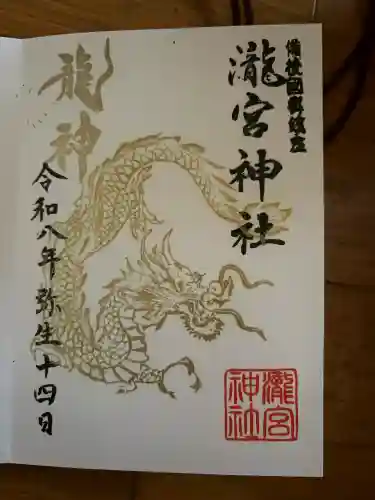 備後國御鎮座
瀧宮神社
龍神
令和八年弥生十四日
瀧宮
神社